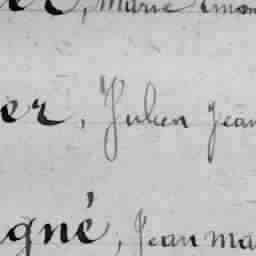 er, Marie Aman
er, Julien Jean
gné, Jean Ma